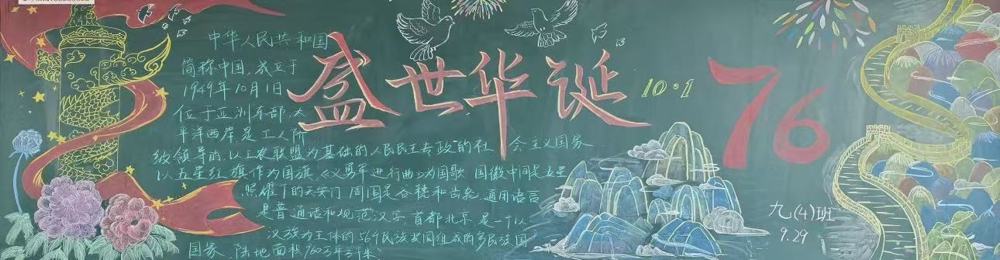 盛世华诞
10·1
76
中华人民共和国
简称中国,成立于
1949年10月1日
位于亚洲东部,太
平洋西岸是工人阶
级领导的,以工农联盟为基础的人民民主专政的社会主义国家
以五星红旗作为国旗,《义勇军进行曲》为国歌 国徽中间是五星
照耀下的天安门 周围是谷穗和齿轮 通用语言
是普通话和规范汉字 首都北京 是一个以
汉族为主体的56个民族共同组成的多民族国
国家 陆地面积960万平方千米
九(4)班
9.29